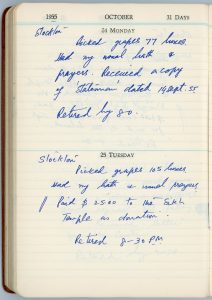 1955 OCTOBER 31 DAYS
24 MONDAY
Stockton
Picked grapes 77 boxes
Had my usual bath &
prayers. Received a copy
of Statesman dated 19 Sept. 55
Retired by 8 0.
25 TUESDAY
Stockton
Picked grapes 105 boxes
Had my bath & usual prayers
Paid $ 25 00 to the Sikh
Temple as donation.
Retired 8-30 PM